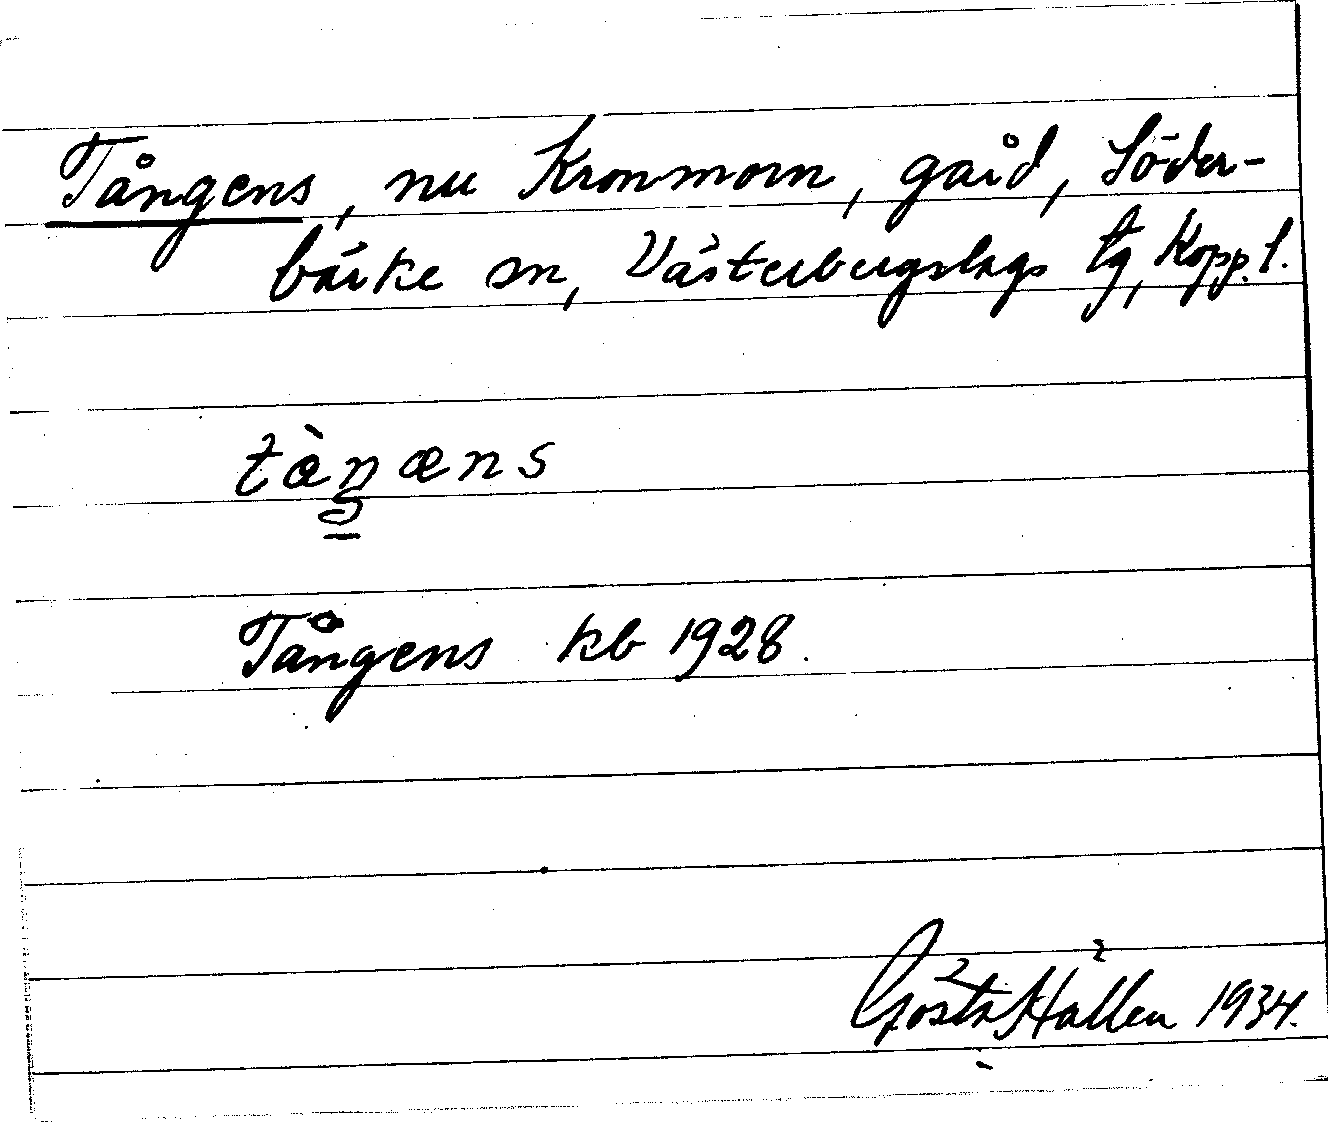 Tångens, nu Kronmorn, gård, Söder-
bärke sn, Västerbergslags tg, Kopp. l.
tàŋæns
Tångens kb 1928.
Gösta Hallen 1934.